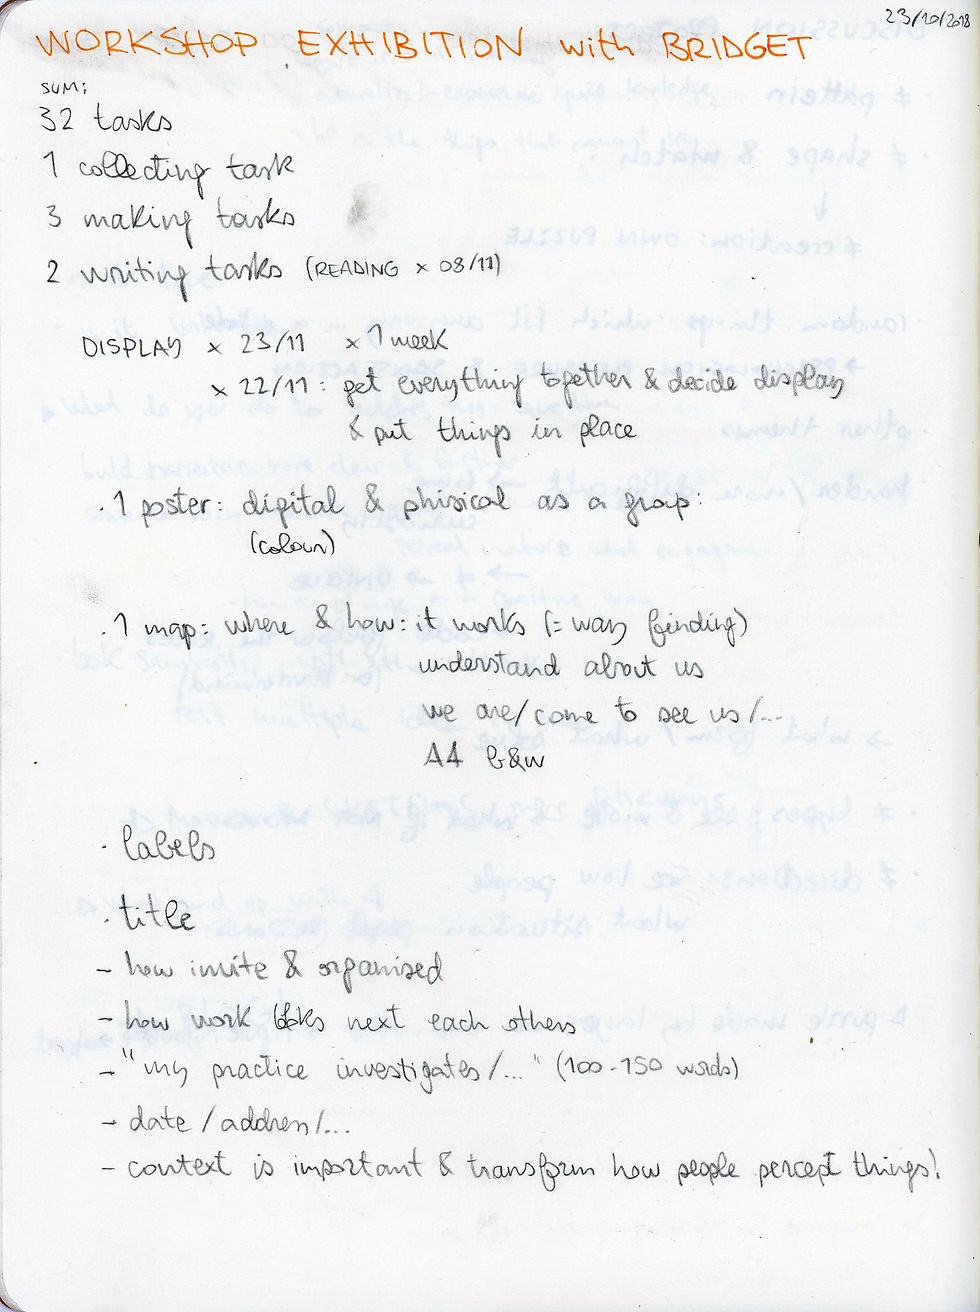 23/10/2018
WORKSHOP EXHIBITION with BRIDGET
SUM:
32 tasks
1 collecting task
3 making tasks
2 writing tasks (READING x 08/11)
DISPLAY x 23/11 x 1 week
x 22/11: get everything together & decide display
& put things in place
. 1 poster: digital & phisical as a group:
(colour)
. 1 map: where & how: it works (= way finding)
understand about us
we are/come to see us/...
A4 b&w
. labels
. title
- how invite & organised
- how work looks next each others
- "my practice investigates/..." (100-150 words)
- date/address/...
- context is important & transform how people percept things!